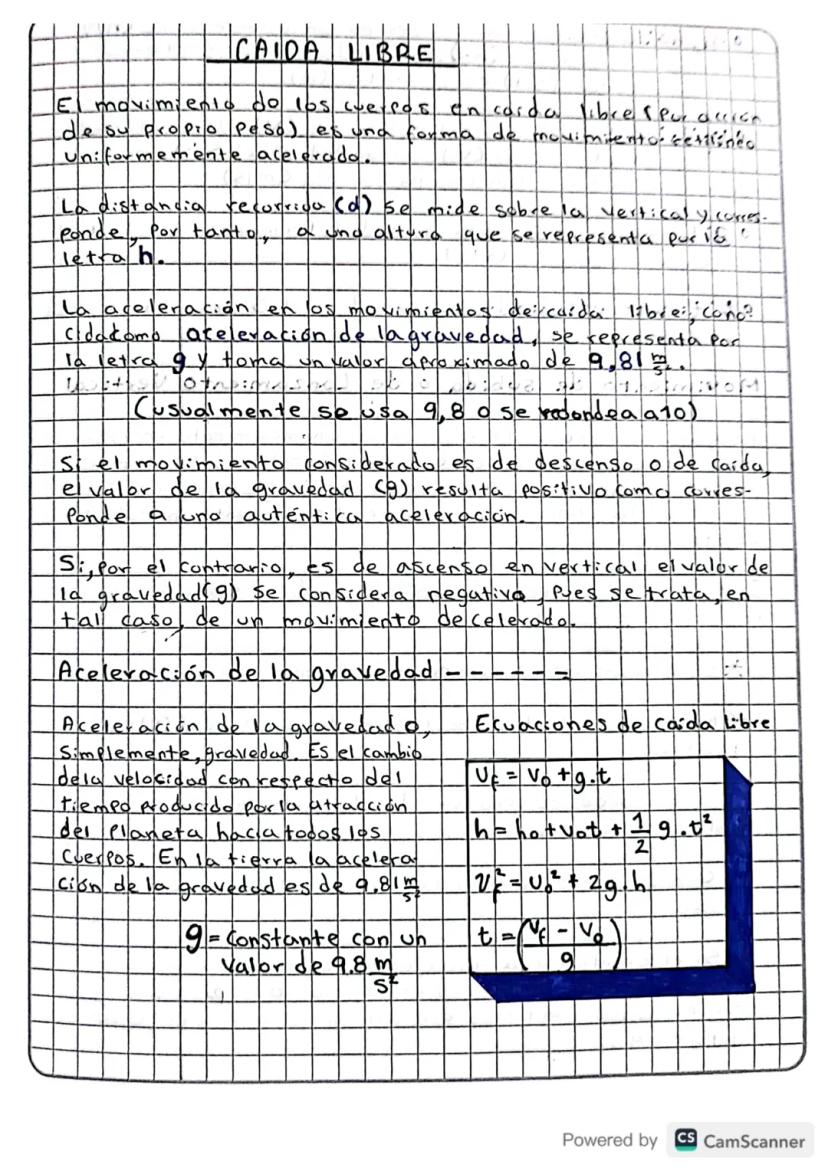 CAIDA LIBRE
El movimiento do los cuerpos en caida libre (por acción
de su propio peso) es una forma de movimiento rectilíneo
uniformemente acelerado.
La distancia recorrida (d) se mide sobre la vertical y corres-
ponde, por tanto, a una altura que se representa por la
letra h.
La aceleración en los movimientos de caída libre, cono-
cida como aceleración de la gravedad, se representa por
la letra g y toma un valor aproximado de 9,81 m/s².
(usualmente se usa 9,8 o se redondea a 10)
Si el movimiento considerado es de descenso o de caida,
el valor de la gravedad (g) resulta positivo como corres-
ponde a una auténtica aceleración.
Si, por el contrario, es de ascenso en vertical el valor de
la gravedad (g) se considera negativo, pues se trata, en
tal caso, de un movimiento decelerado.
Aceleración de la gravedad ------
Aceleración de la gravedad o,
simplemente, gravedad. Es el cambio
de la velocidad con respecto del
tiempo producido por la atracción
del planeta hacia todos los
cuerpos. En la tierra la acelera
ción de la gravedad es de 9.81 m/s²
g = constante con un
valor de 9.8 m/s²
Ecuaciones de caída libre
Vf = V0 + g.t
h = h0 + V0t + 1/2 g.t²
Vf² = V0² + 2g.h
t = (Vf - V0 / g)
Powered by CS CamScanner